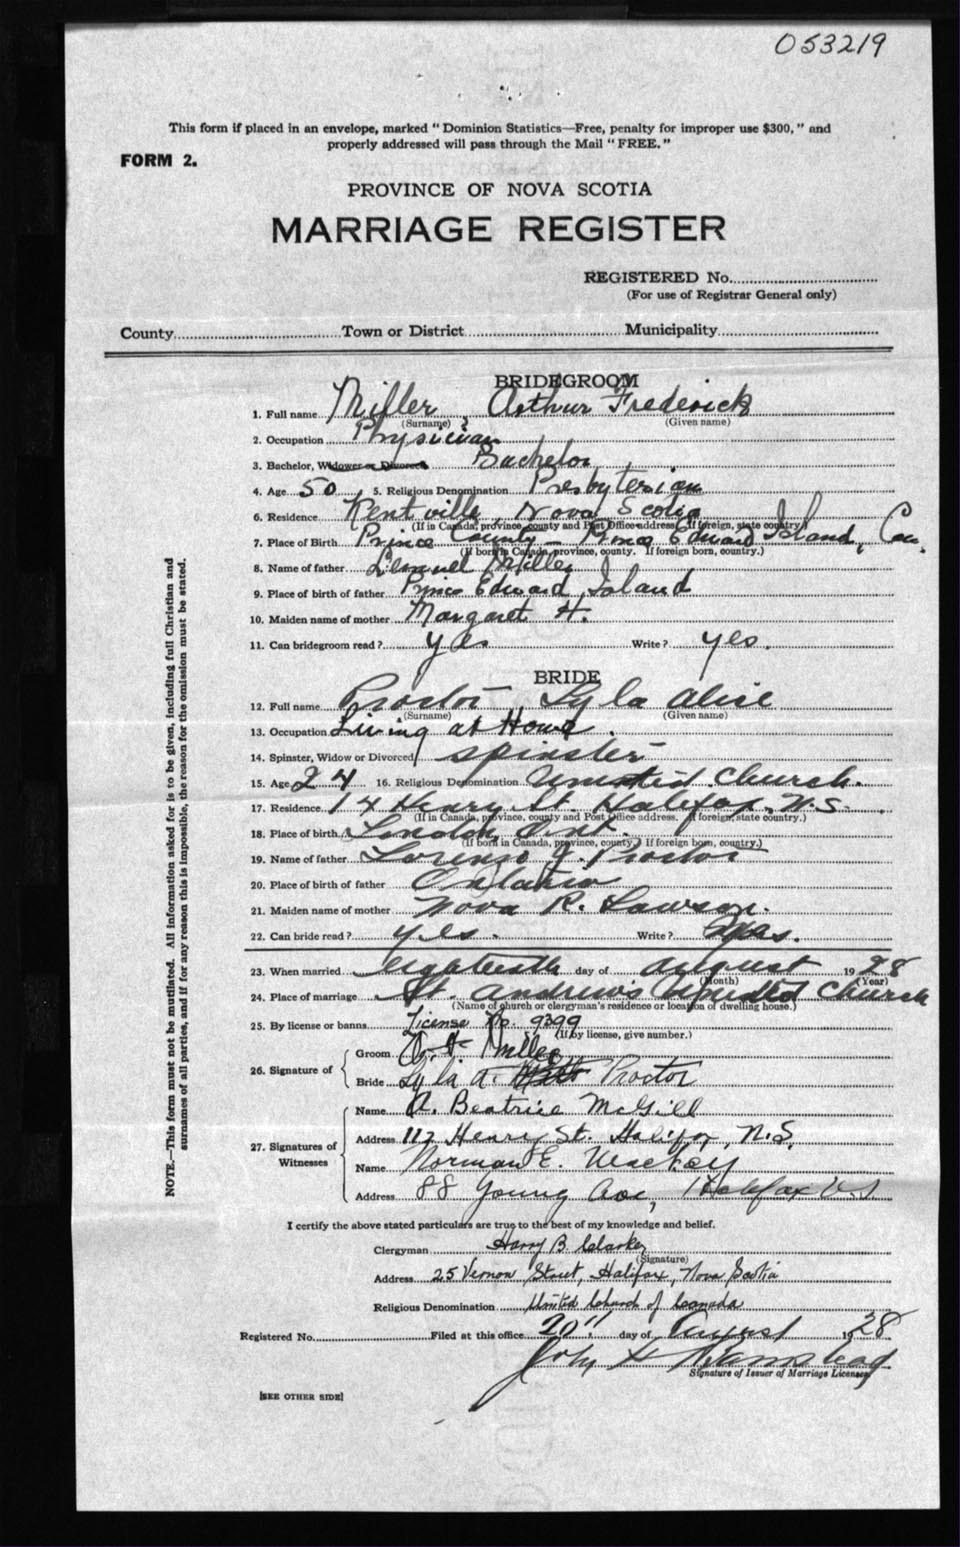 053219
This form if placed in an envelope, marked "Dominion Statistics—Free, penalty for improper use $300," and
properly addressed will pass through the Mail "FREE."
FORM 2.
PROVINCE OF NOVA SCOTIA
MARRIAGE REGISTER
REGISTERED No.
(For use of Registrar General only)
County Town or District Municipality
BRIDEGROOM
1. Full name Miller, Arthur Frederick
(Surname) (Given name)
2. Occupation Physician
3. Bachelor, Widower or Divorced Bachelor
4. Age 50 5. Religious Denomination Presbyterian
6. Residence Kentville, Nova Scotia
(If in Canada, province, county and Post Office address. If foreign, state country.)
7. Place of Birth Prince County - Prince Edward Island, Can.
(If born in Canada, province, county. If foreign born, country.)
8. Name of father Lemuel Miller
9. Place of birth of father Prince Edward Island
10. Maiden name of mother Margaret H.
11. Can bridegroom read? yes Write? yes.
BRIDE
12. Full name Proctor Lyla Alice
(Surname) (Given name)
13. Occupation Living at Home.
14. Spinster, Widow or Divorced Spinster
15. Age 24 16. Religious Denomination United Church.
17. Residence 14 Henry St. Halifax, N.S.
(If in Canada, province, county and Post Office address. If foreign, state country.)
18. Place of birth London, Ont.
(If born in Canada, province, county. If foreign born, country.)
19. Name of father Lorenzo J. Proctor
20. Place of birth of father Ontario
21. Maiden name of mother Nova R. Lawson.
22. Can bride read? yes. Write? yes.
23. When married eighteenth day of August 1928
(Month) (Year)
24. Place of marriage St. Andrew's United Church
(Name of church or clergyman's residence or location of dwelling house.)
25. By license or banns License No. 9399
(If by license, give number.)
26. Signature of
Groom A. F. Miller
Bride Lyla A. Proctor
27. Signatures of Witnesses
Name A. Beatrice McGill
Address 117 Henry St. Halifax, N.S.
Name Norman E. Mackay
Address 88 Young Ave, Halifax N.S
I certify the above stated particulars are true to the best of my knowledge and belief.
Clergyman Harry B. Clarke
(Signature)
Address 25 Vernon Street, Halifax, Nova Scotia
Religious Denomination United Church of Canada
Registered No. Filed at this office 20" day of August 1928
John H
Signature of Issuer of Marriage Licenses
[SEE OTHER SIDE]
NOTE.—This form must not be mutilated. All information asked for is to be given, including full Christian and
surnames of all parties, and if for any reason this is impossible, the reason for the omission must be stated.